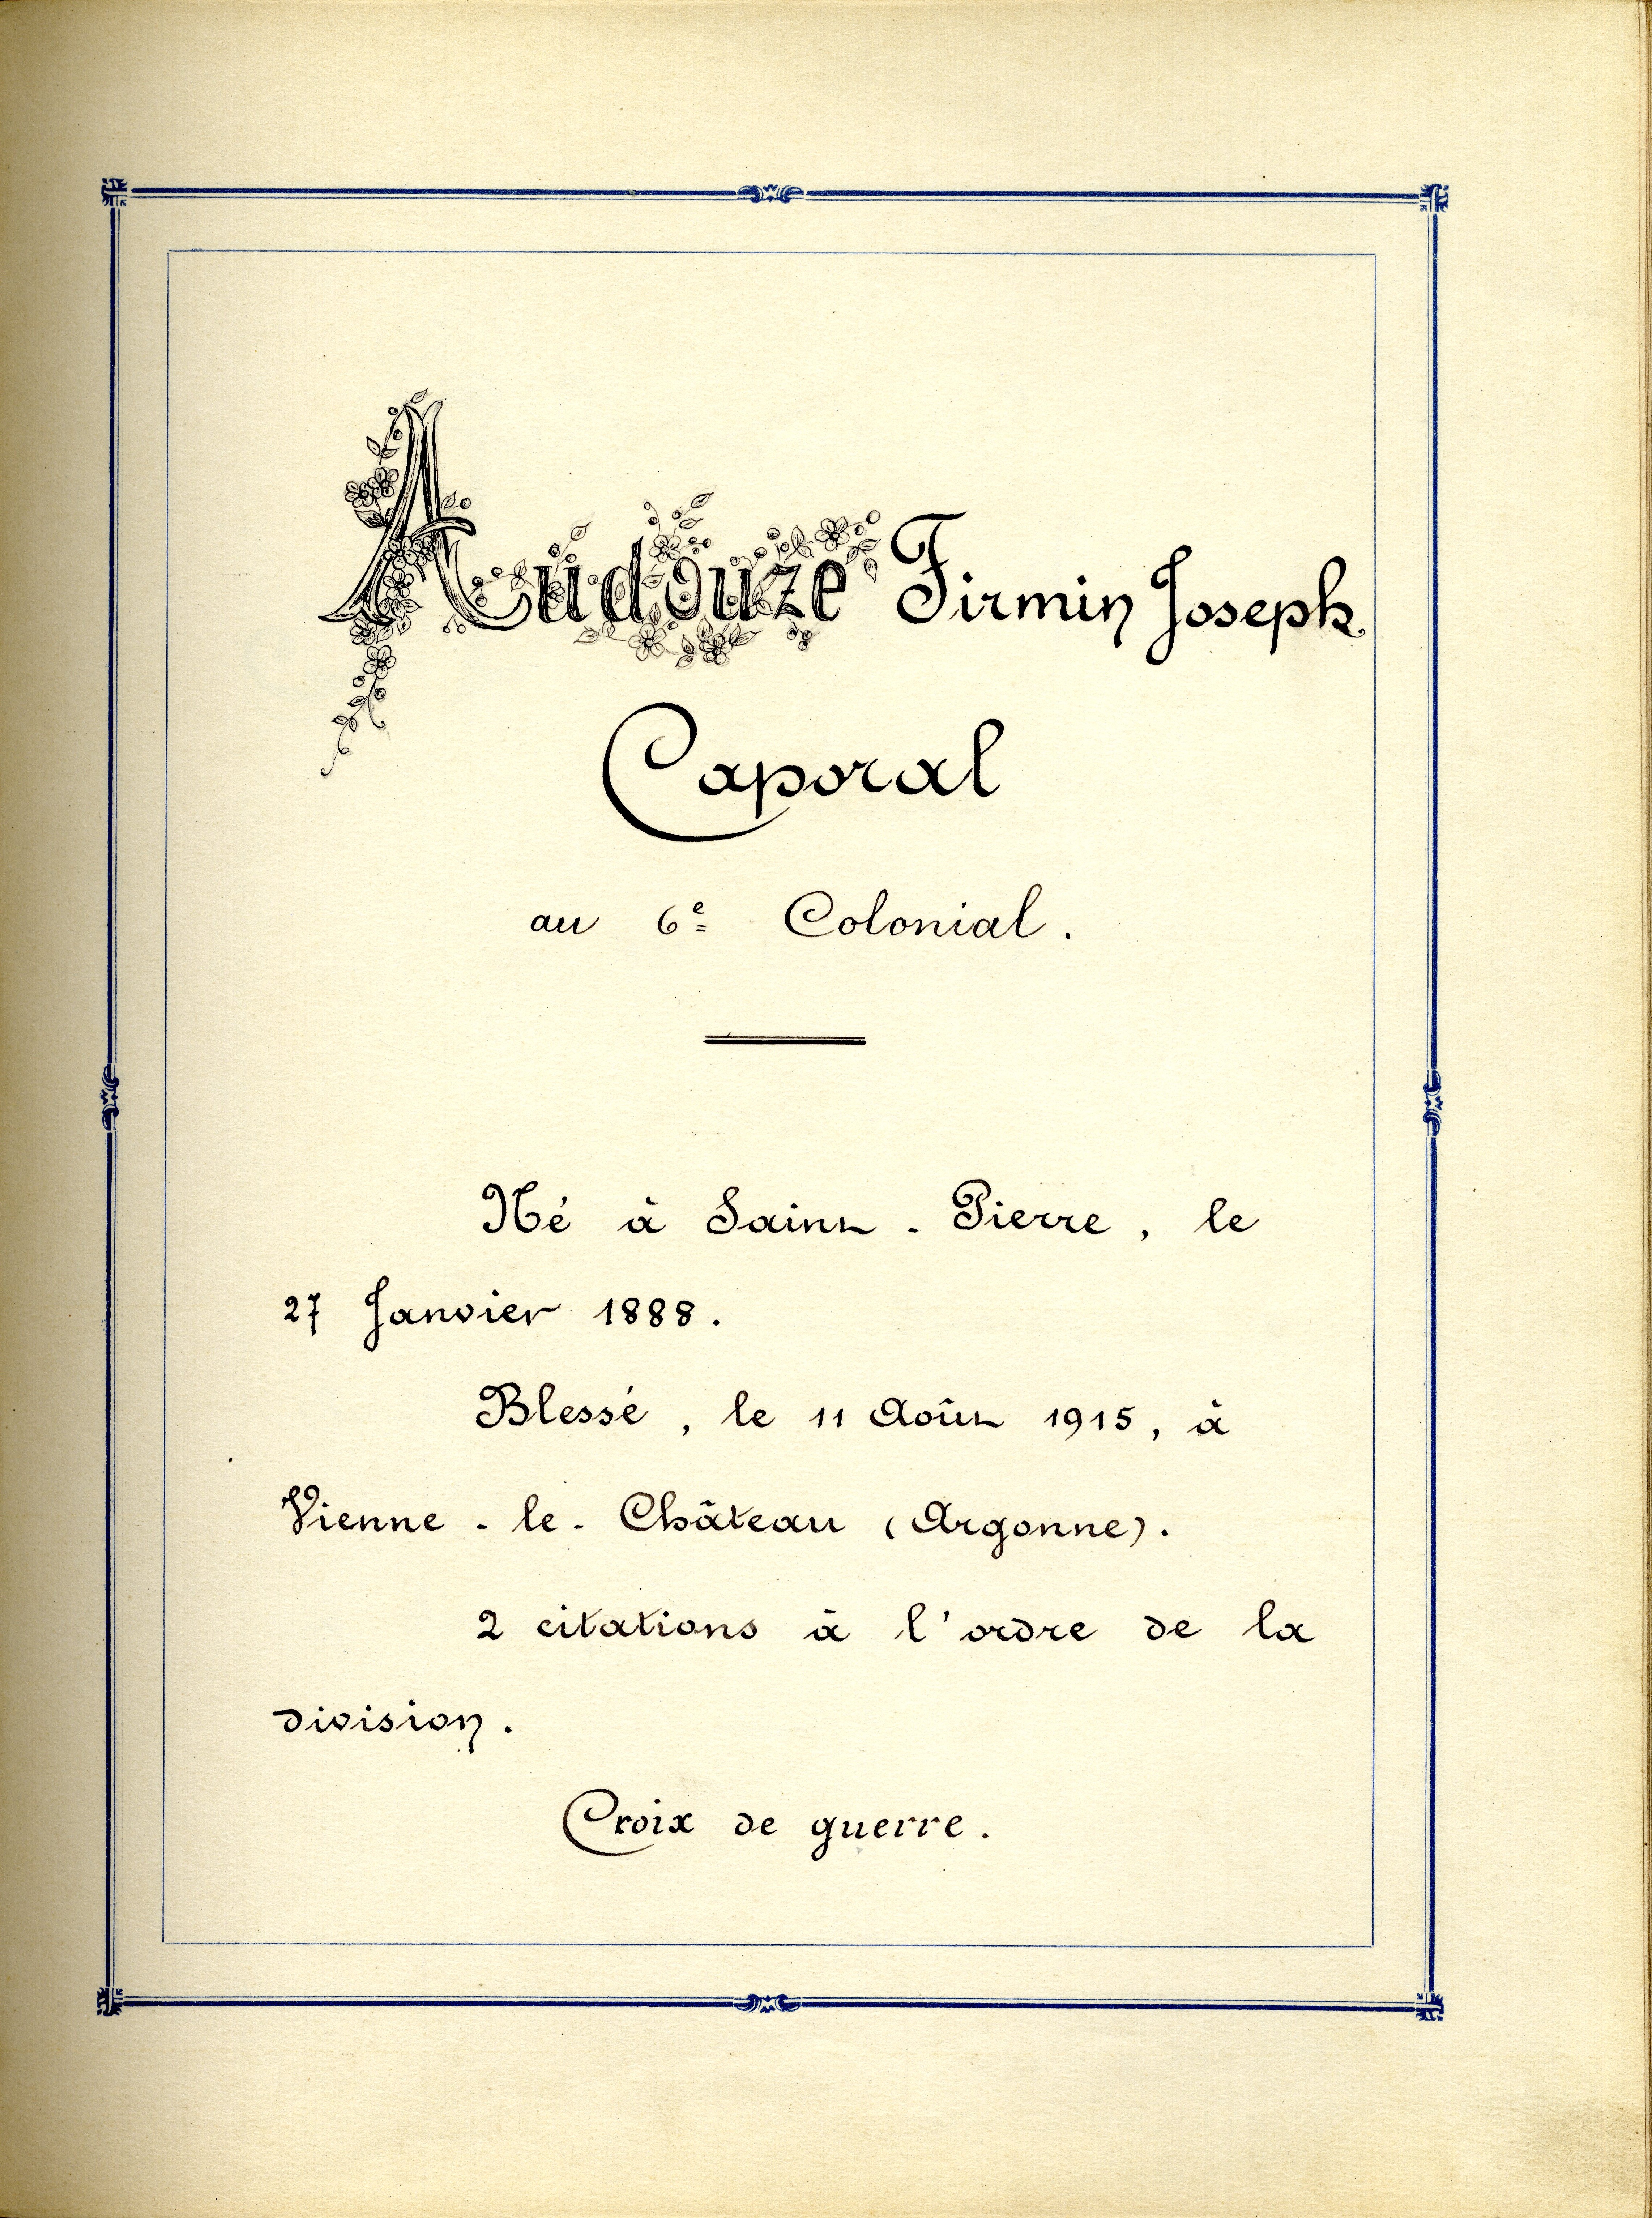 Audouze Firmin Joseph
Caporal
au 6e Colonial.
Né à Saint-Pierre, le
27 Janvier 1888.
Blessé, le 11 Août 1915, à
Vienne-le-Château (Argonne).
2 citations à l'ordre de la
division.
Croix de guerre.